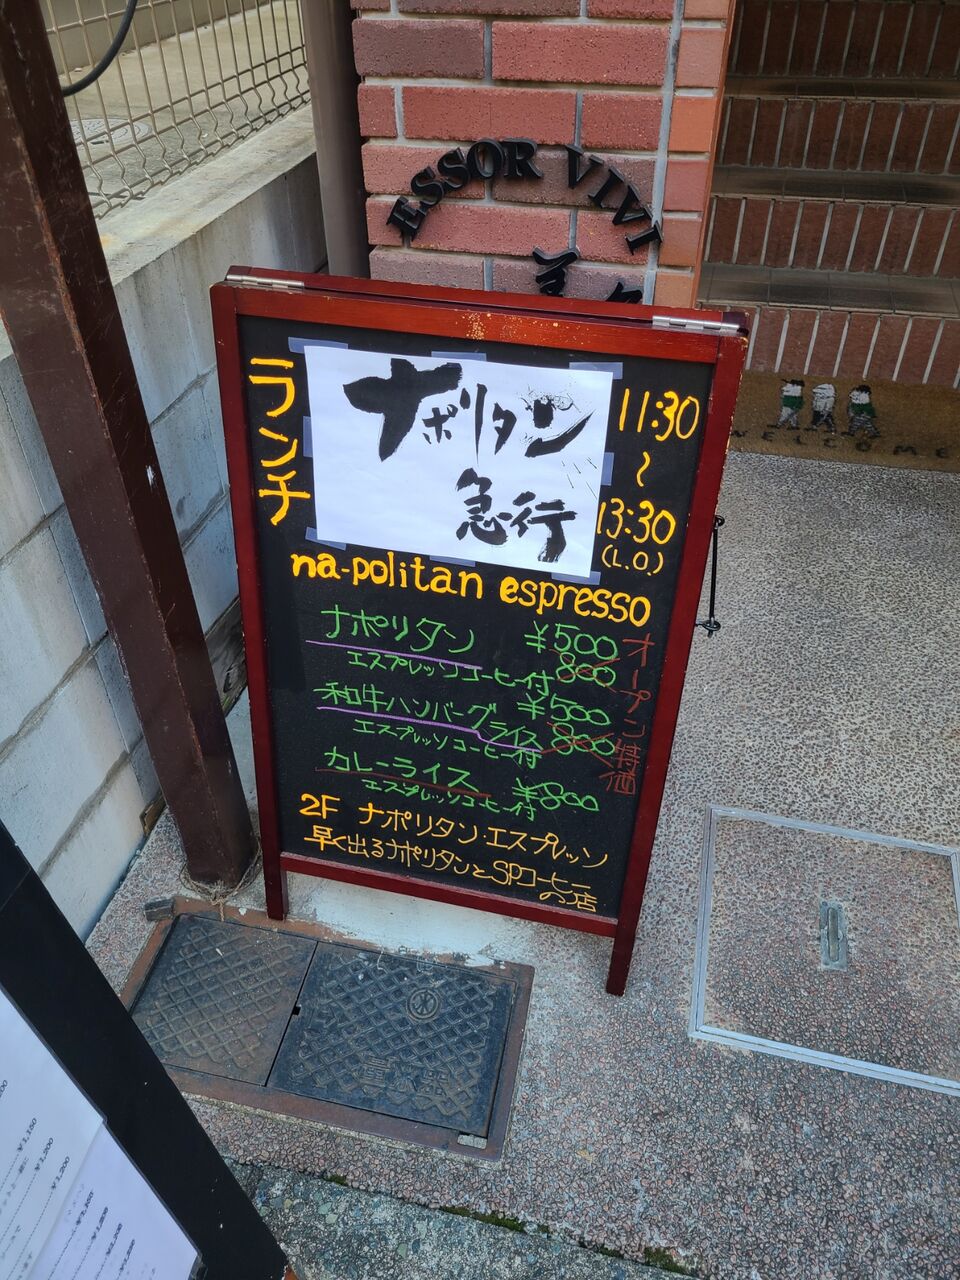 ESSOR VIVI
ランチ
ナポリタン
急行
11:30
〜
13:30
(L.O.)
na-politan espresso
ナポリタン ¥500
エスプレッソコーヒー付 800
和牛ハンバーグライス ¥500
エスプレッソコーヒー付 800
オープン特価
カレーライス ¥800
エスプレッソコーヒー付
2F ナポリタン・エスプレッソ
早く出るナポリタンとSPコーヒー
の店
WELCOME
¥1,200
¥1,200